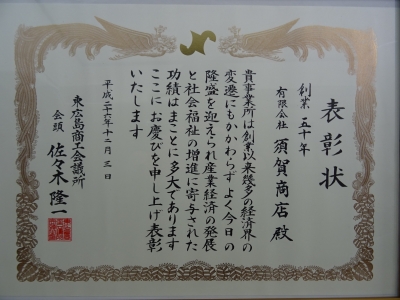 表彰状
創業 三十年
有限会社 須賀商店 殿
貴事業所は創業以来幾多の経済界の
変遷にもかかわらず よく今日の
隆盛を迎えられ産業経済の発展
と社会福祉の増進に寄与された
功績はまことに多大であります
ここにお慶びを申し上げ表彰
いたします
平成二十六年十二月三日
東広島商工会議所
会頭 佐々木 隆一